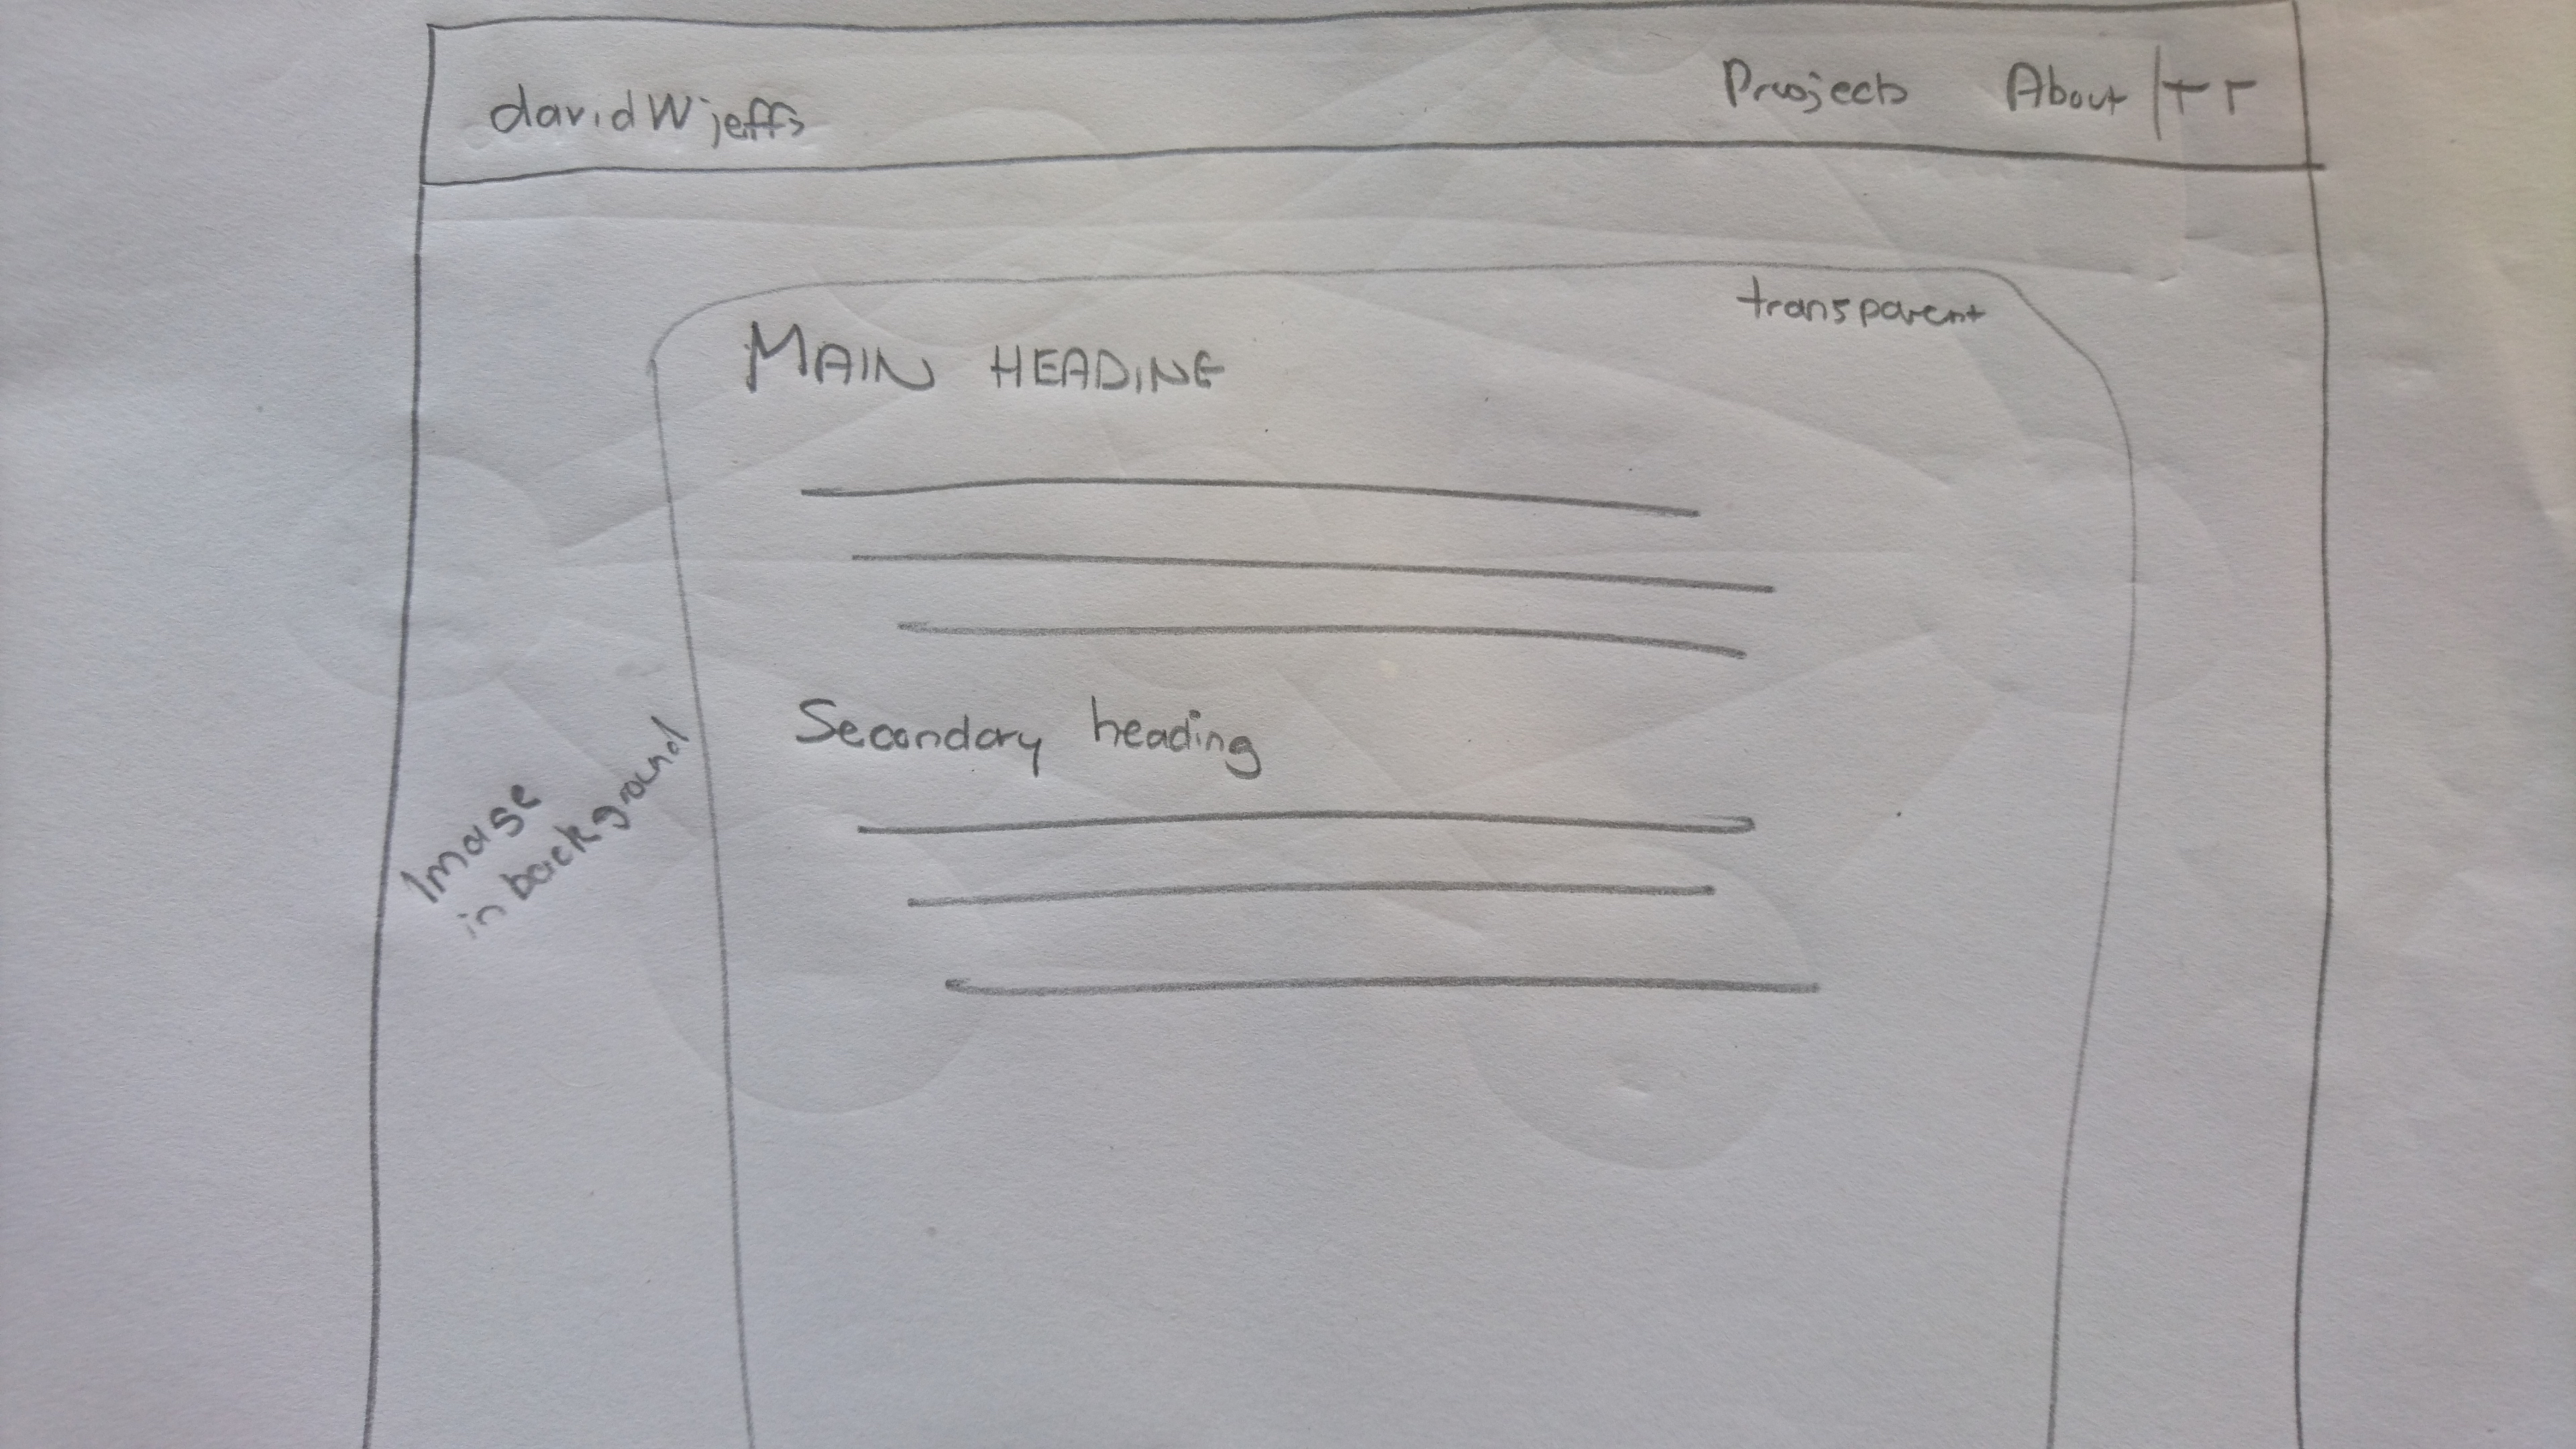 davidWjeffs
Projects About
transparent
MAIN HEADING
Secondary heading
Image
in background